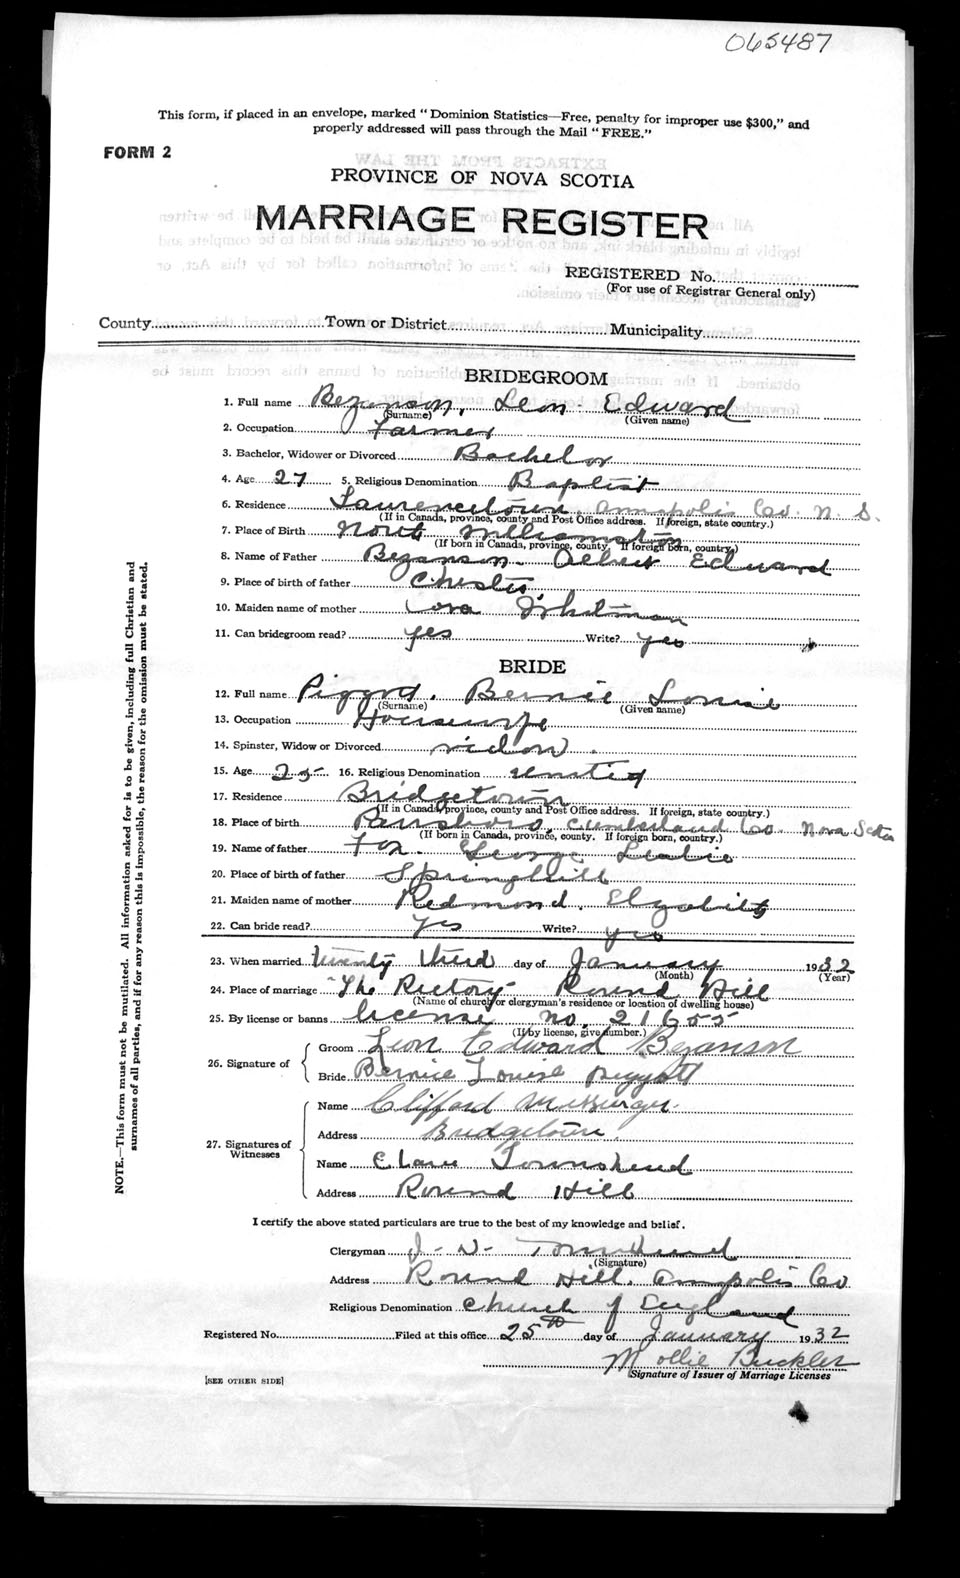 065487
This form, if placed in an envelope, marked "Dominion Statistics—Free, penalty for improper use $300," and
properly addressed will pass through the Mail "FREE."
FORM 2
PROVINCE OF NOVA SCOTIA
MARRIAGE REGISTER
REGISTERED No.
(For use of Registrar General only)
County Town or District Municipality
BRIDEGROOM
1. Full name Bezanson, Leon Edward
(Surname) (Given name)
2. Occupation Farmer
3. Bachelor, Widower or Divorced Bachelor
4. Age 27 5. Religious Denomination Baptist
6. Residence Lawrencetown, Annapolis Co. N. S.
(If in Canada, province, county and Post Office address. If foreign, state country.)
7. Place of Birth North Williamston
(If born in Canada, province, county. If foreign born, country.)
8. Name of Father Bezanson. Albert Edward
9. Place of birth of father Chester
10. Maiden name of mother Cora
11. Can bridegroom read? yes Write? yes
BRIDE
12. Full name Piggott, Bernice Louise
(Surname) (Given name)
13. Occupation Housewife
14. Spinster, Widow or Divorced widow.
15. Age 25 16. Religious Denomination
17. Residence Bridgetown
(If in Canada, province, county and Post Office address. If foreign, state country.)
18. Place of birth Parrsboro, Cumberland Co. Nova Scotia
(If born in Canada, province, county. If foreign born, country.)
19. Name of father Fox George Leslie
20. Place of birth of father Springhill
21. Maiden name of mother Redmond, Elizabeth
22. Can bride read? Yes Write? yes
23. When married twenty third day of January 1932
(Month) (Year)
24. Place of marriage "The Rectory" Round Hill
(Name of church or clergyman's residence or location of dwelling house)
25. By license or banns license no. 21655
(If by license, give number.)
26. Signature of
Groom Leon Edward Bezanson
Bride Bernice Louise Piggott
27. Signatures of Witnesses
Name Clifford
Address Bridgetown.
Name Clare Townshend
Address Round Hill
I certify the above stated particulars are true to the best of my knowledge and belief.
Clergyman J. W. Townshend
(Signature)
Address Round Hill, Annapolis Co
Religious Denomination Church of England
Registered No. Filed at this office 25th day of January 1932
Mollie Buckler
Signature of Issuer of Marriage Licenses
[SEE OTHER SIDE]
NOTE.—This form must not be mutilated. All information asked for is to be given, including full Christian and
surnames of all parties, and if for any reason this is impossible, the reason for the omission must be stated.